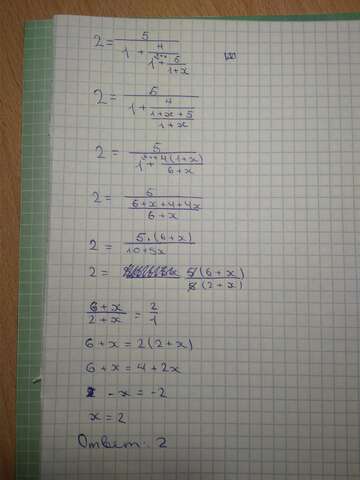 2 = 5/(1 + 4/(1 + 5/(1+x)))
2 = 5/(1 + 4/((1+x+5)/(1+x)))
2 = 5/(1 + 4(1+x)/(6+x))
2 = 5/((6+x+4+4x)/(6+x))
2 = 5·(6+x)/(10+5x)
2 = 5(6+x)/5(2+x)
(6+x)/(2+x) = 2/1
6+x = 2(2+x)
6+x = 4+2x
-x = -2
x = 2
Ответ: 2